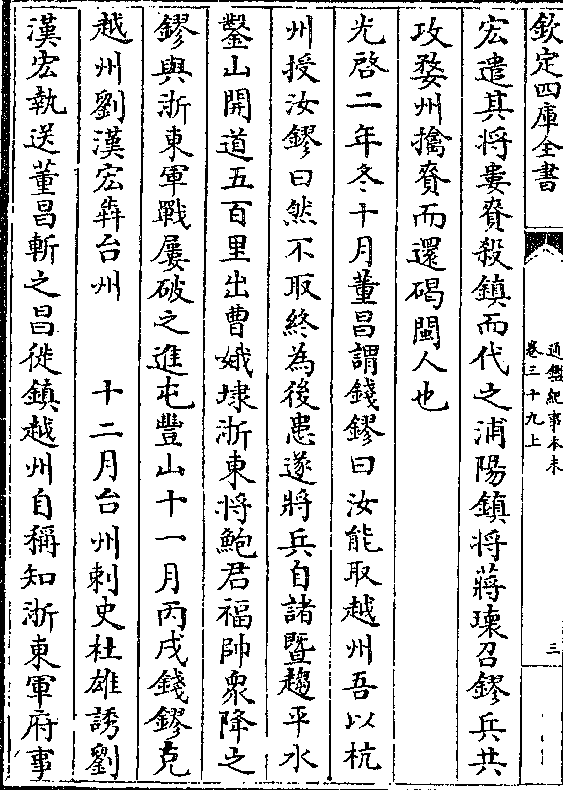 欽定四庫全書
通鑑紀事本末
卷三十九上
三
宏遣其將婁賚殺鎮而代之浦陽鎮將蔣瓌召鏐兵共
攻婺州擒賚而還碣閩人也
光啓二年冬十月董昌謂錢鏐曰汝能取越州吾以杭
州授汝鏐曰然不取終為後患遂將兵自諸暨趨平水
鑿山開道五百里出曹娥埭浙東將鮑君福帥衆降之
鏐與浙東軍戰屢破之進屯豐山十一月丙戌錢鏐克
越州劉漢宏犇台州　　十二月台州刺史杜雄誘劉
漢宏執送董昌斬之昌徙鎮越州自稱知浙東軍府事